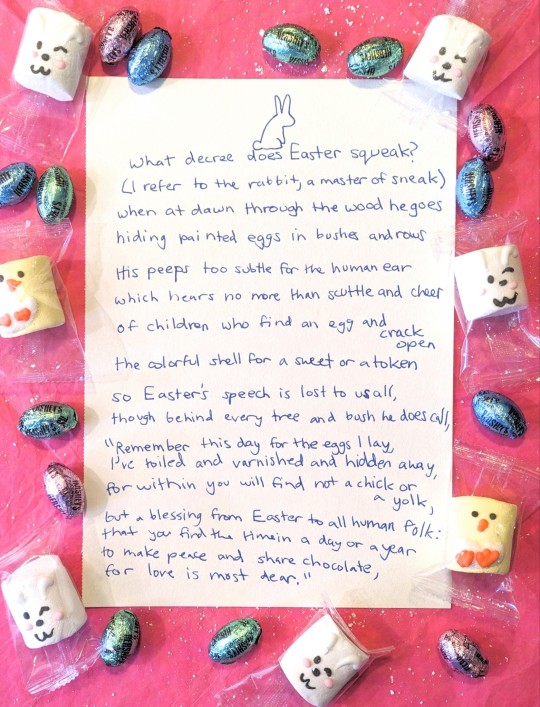 what decree does Easter squeak?
(I refer to the rabbit, a master of sneak)
when at dawn through the wood he goes
hiding painted eggs in bushes and rows
His peeps too subtle for the human ear
which hears no more than scuttle and cheer
of children who find an egg and crack open
the colorful shell for a sweet or a token
so Easter's speech is lost to us all,
though behind every tree and bush he does call,
"Remember this day for the eggs I lay,
I've toiled and varnished and hidden away,
for within you will find not a chick or a yolk,
but a blessing from Easter to all human folk:
that you find the time in a day or a year
to make peace and share chocolate,
for love is most dear."
HERSHEY'S
HERSHEY'S
HERSHEY'S
HERSHEY'S